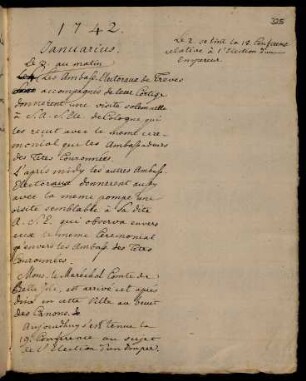 325
1742.
Januarius.
Le 2. au matin
Les Ambass. Electoraux de Treves
accompagnés de leur Cortége
donnerent une visite solemnelle
à S. A. E. de Cologne qui
les reçut avec le même cere-
monial que les Ambassadeurs
des Têtes Couronnées.
L'apres midy les autres Ambass.
Electoraux donnerent aussy
avec la même pompe une
visite semblable à la dite
A. S. E. qui observa envers
eux le même Ceremonial
qu'envers les Ambass. des Têtes
Couronnées.
Mons. le Maréchal Comte de
Belle Isle, est arrivé cet après
diné en cette Ville au bruit
des Canons, &
Aujourdhuy s'est tenue la
19. Conference au sujet
de l'Election d'un Emper.
Le 2
la 19. Conference
relative à l'Election d'un
Empereur.